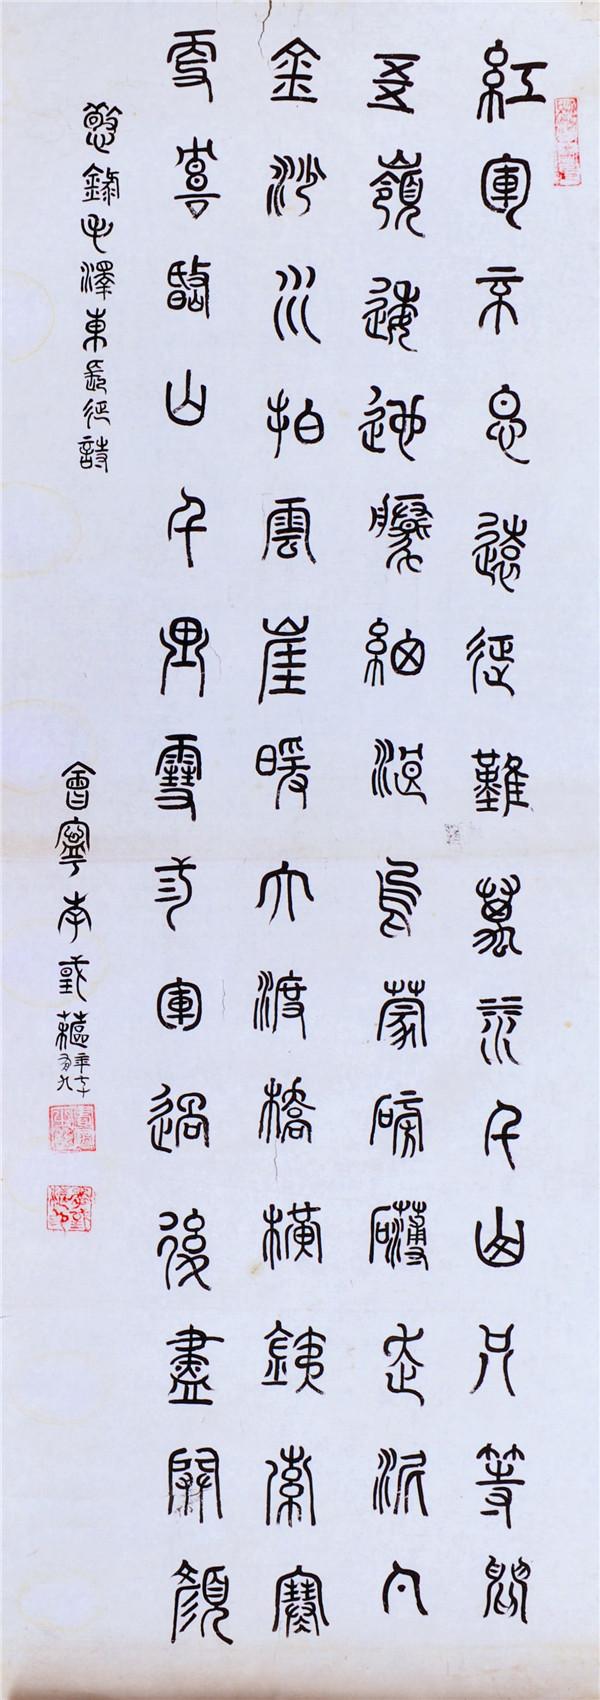 紅軍不怕遠征難萬水千山只等閒
五嶺逶迤騰細浪烏蒙磅礴走泥丸
金沙水拍雲崖暖大渡橋橫鐵索寒
更喜岷山千里雪三軍過後盡開顏
敬錄毛澤東長征詩
會寧李 年七十有九